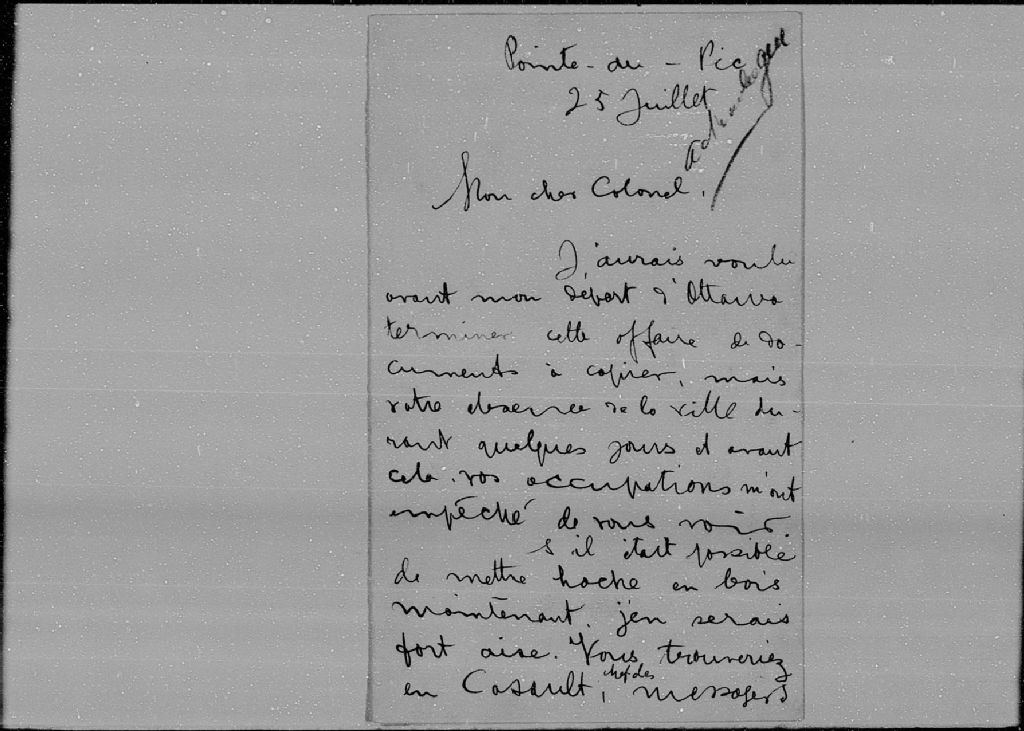 Pointe-au-Pic
25 Juillet
Mon cher Colonel,
J'aurais voulu
avant mon départ d'Ottawa
terminer cette affaire de do-
cuments à copier, mais
votre absence de la ville du-
rant quelques jours et avant
cela vos occupations m'ont
empêché de vous voir.
S'il était possible
de mettre hache en bois
maintenant, j'en serais
fort aise. Vous trouveriez
en Casault, chef des messagers